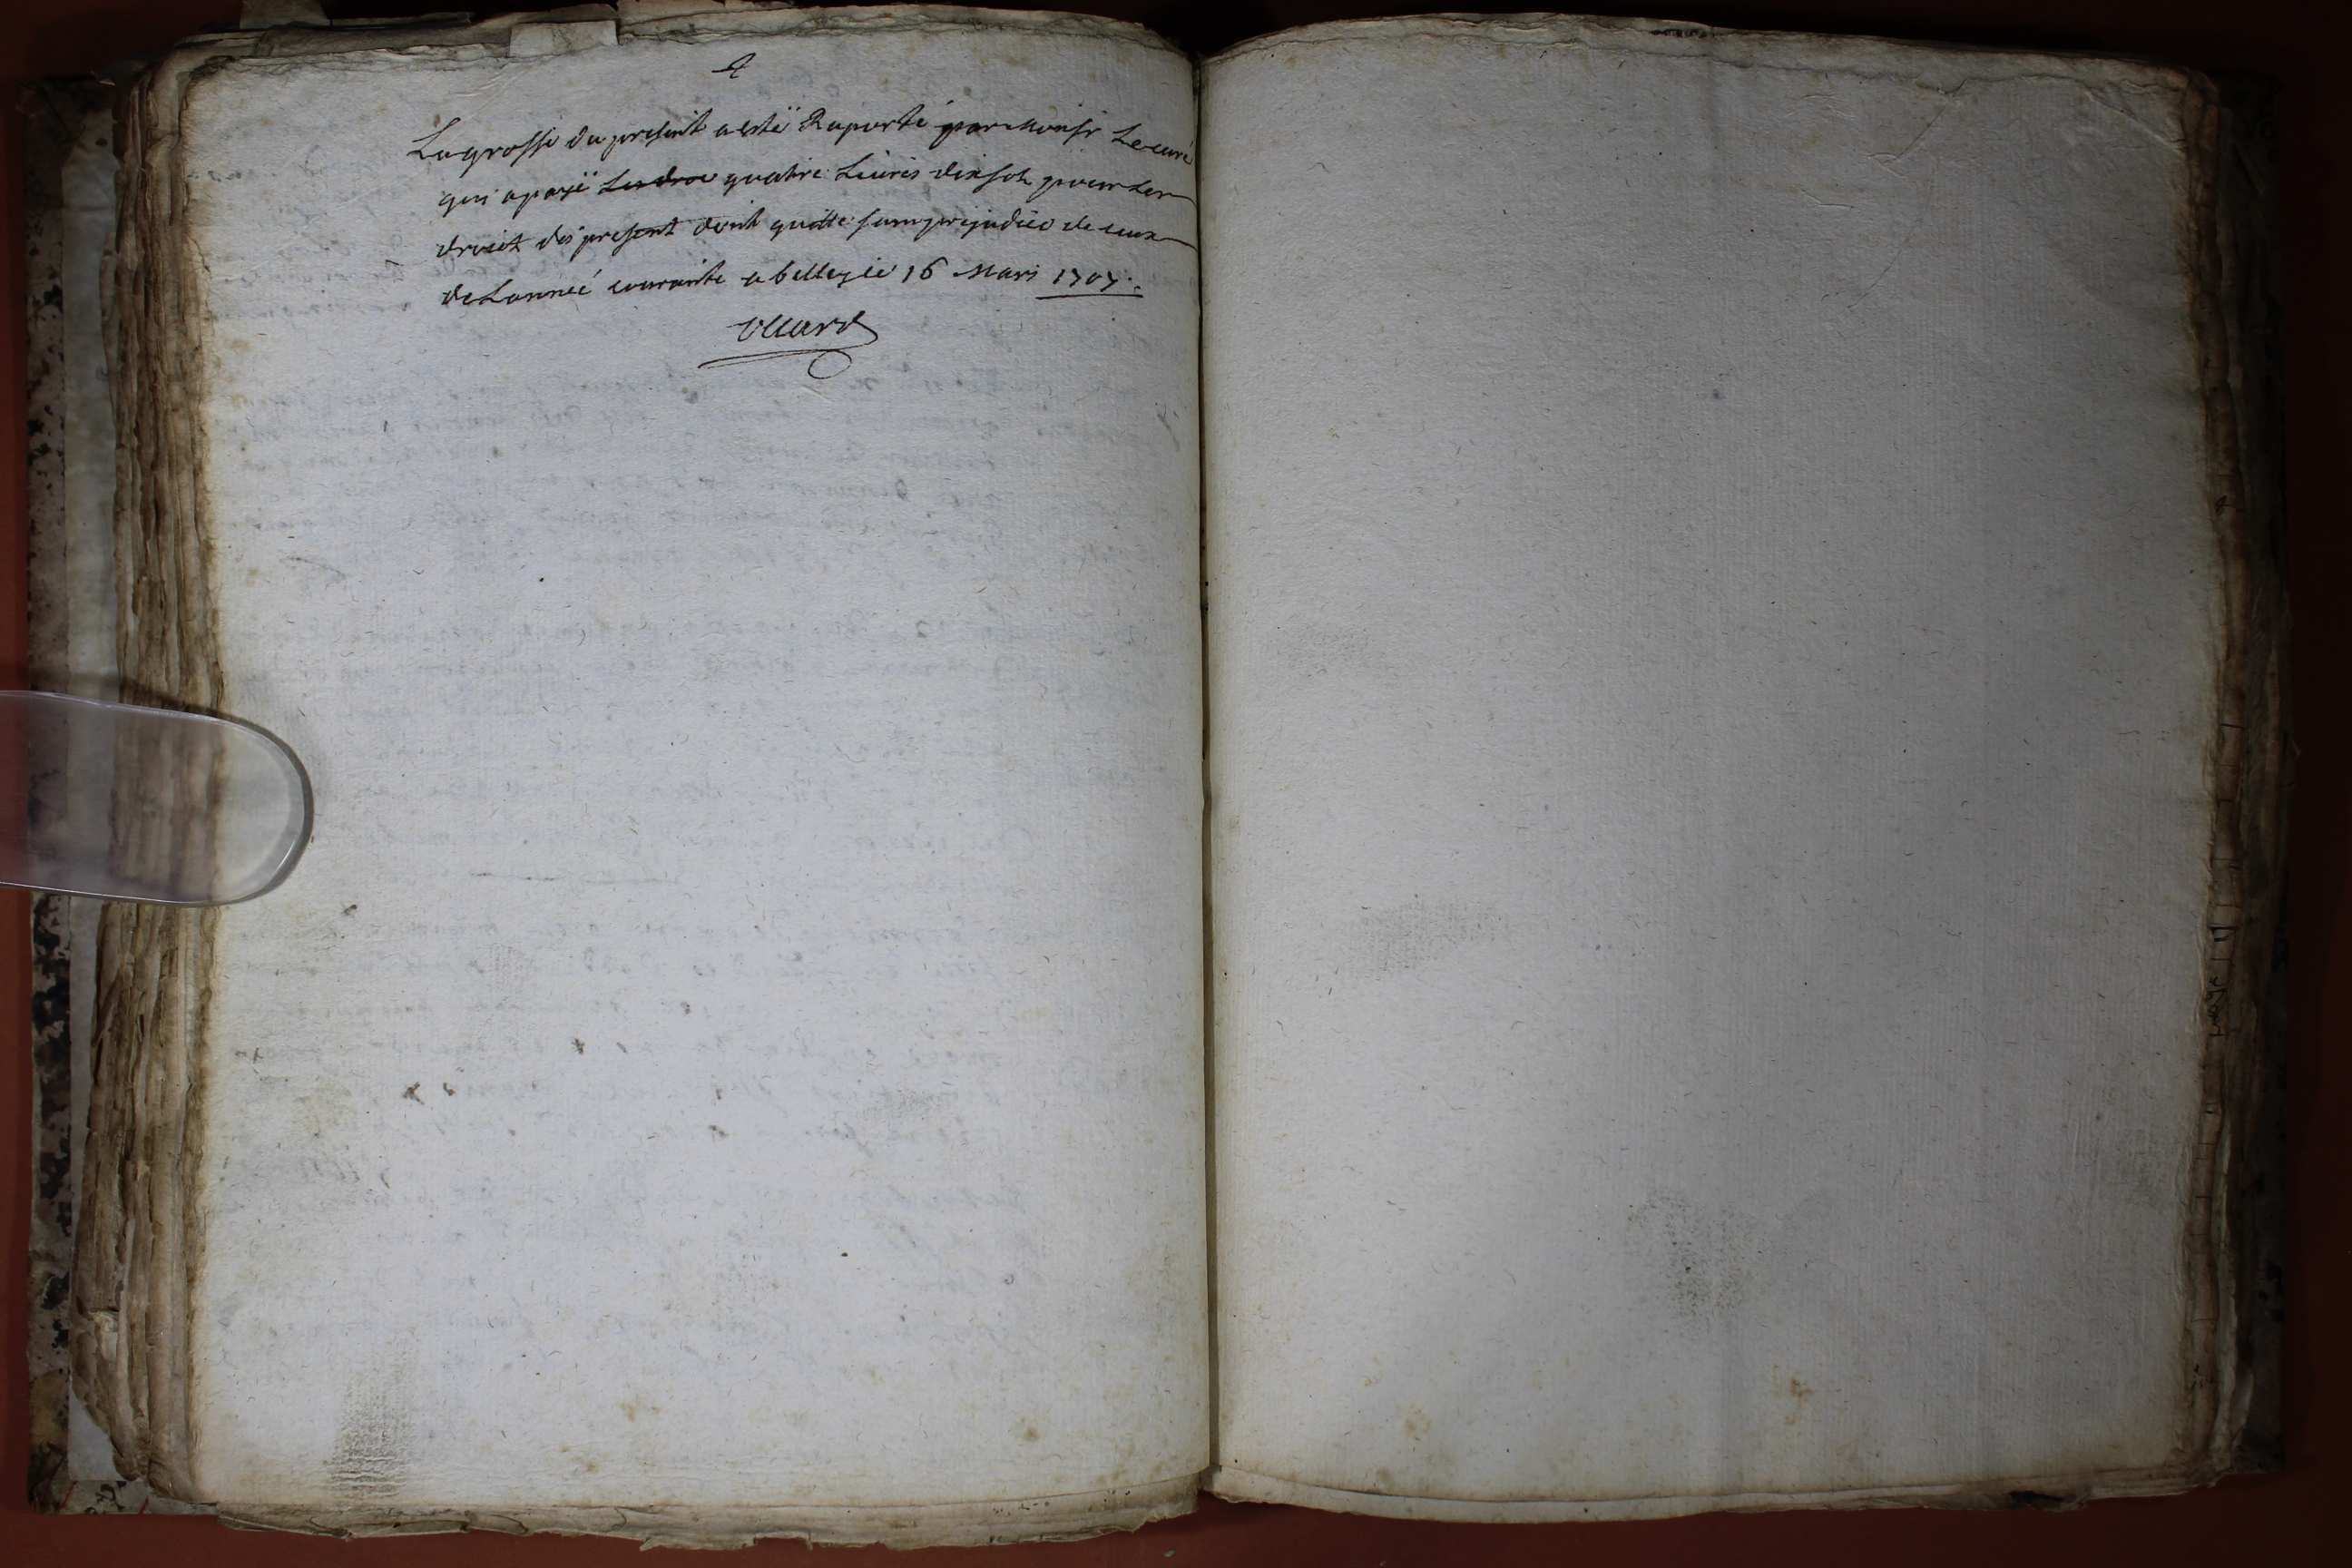 4
La grosse du present a esté Raporté par Monsr Le curé
qui a payé Les droi quatre Liures dix sols pour Les
droict des present dont quitte sans prejudice de ceux
de Lannéé courante a bellegie 16 Mars 1707